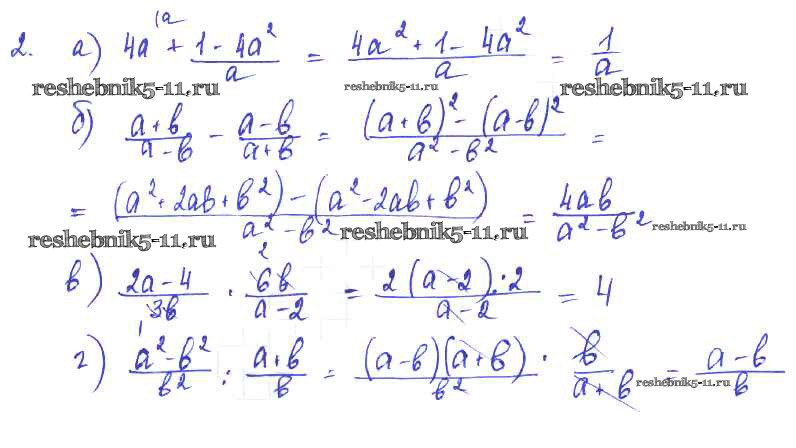 2. а) 4a^{\a} + \frac{1-4a^2}{a} = \frac{4a^2+1-4a^2}{a} = \frac{1}{a}
reshebnik5-11.ru reshebnik5-11.ru reshebnik5-11.ru
б) \frac{a+b}{a-b} - \frac{a-b}{a+b} = \frac{(a+b)^2-(a-b)^2}{a^2-b^2} =
= \frac{(a^2+2ab+b^2)-(a^2-2ab+b^2)}{a^2-b^2} = \frac{4ab}{a^2-b^2} reshebnik5-11.ru
reshebnik5-11.ru reshebnik5-11.ru
в) \frac{2a-4}{3b} · \frac{6b}{a-2} = \frac{2(a-2)·2}{a-2} = 4
г) \frac{a^2-b^2}{b^2} : \frac{a+b}{b} = \frac{(a-b)(a+b)}{b^2} · \frac{b}{a+b} = \frac{a-b}{b}
reshebnik5-11.ru